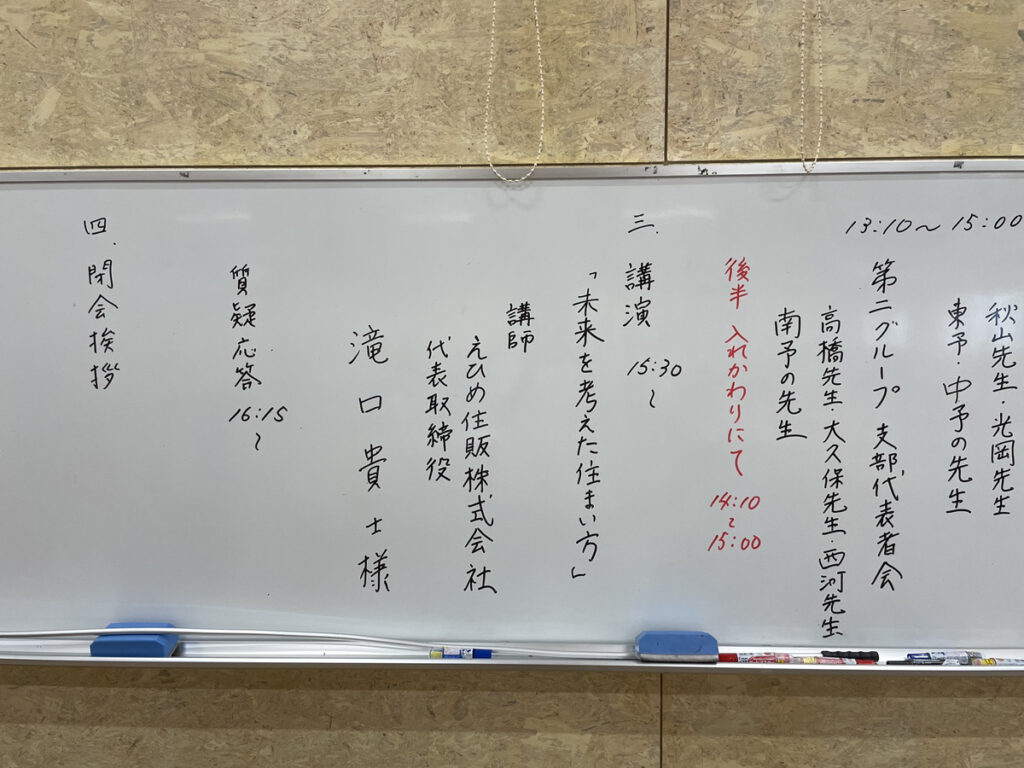 13:10～15:00
秋山先生・光岡先生
東予・中予の先生
第二グループ 支部代表者会
高橋先生・大久保先生・西河先生
南予の先生
後半 入れかわりにて
14:10
～
15:00
三. 講演 15:30～
「未来を考えた住まい方」
講師
えひめ住販株式会社
代表取締役
滝口貴士様
質疑応答 16:15～
四. 閉会挨拶